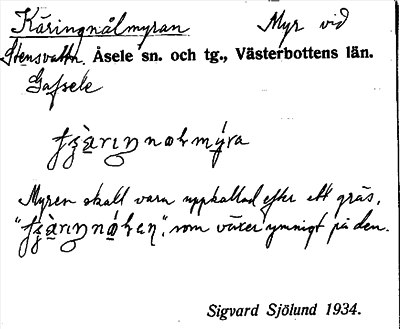 Käringnålmyran Myr vid
Stensvattn. Åsele sn. och tg., Västerbottens län.
Gafsele
Myren skall vara uppkallad efter ett gräs,
som växer ymnigt på den.
Sigvard Sjölund 1934.